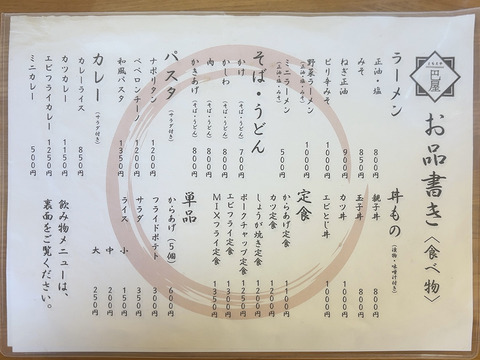 円屋
お品書き〈食べ物〉
ラーメン
正油・塩 800円
みそ 850円
ねぎ正油 900円
ピリ辛みそ 1000円
野菜ラーメン 1000円
(正油・塩・みそ)
ミニラーメン 500円
(正油・塩)
そば・うどん
かけ (そば・うどん) 700円
かしわ (そば・うどん) 800円
肉 (そば・うどん) 800円
かきあげ (そば・うどん) 800円
パスタ (サラダ付き)
ナポリタン 1200円
ペペロンチーノ 1200円
和風パスタ 1350円
カレー (サラダ付き)
カレーライス 850円
カツカレー 1150円
エビフライカレー 1250円
ミニカレー 500円
丼もの (漬物・味噌汁付き)
親子丼 800円
玉子丼 800円
カツ丼 1000円
エビとじ丼 1000円
定食
からあげ定食 1100円
カツ定食 1200円
しょうが焼き定食 1200円
ポークチャップ定食 1250円
エビフライ定食 1300円
MIXフライ定食 1350円
単品
からあげ(5個) 600円
フライドポテト 300円
サラダ 350円
ライス 小 150円
中 200円
大 250円
飲み物メニューは、
裏面をご覧ください。